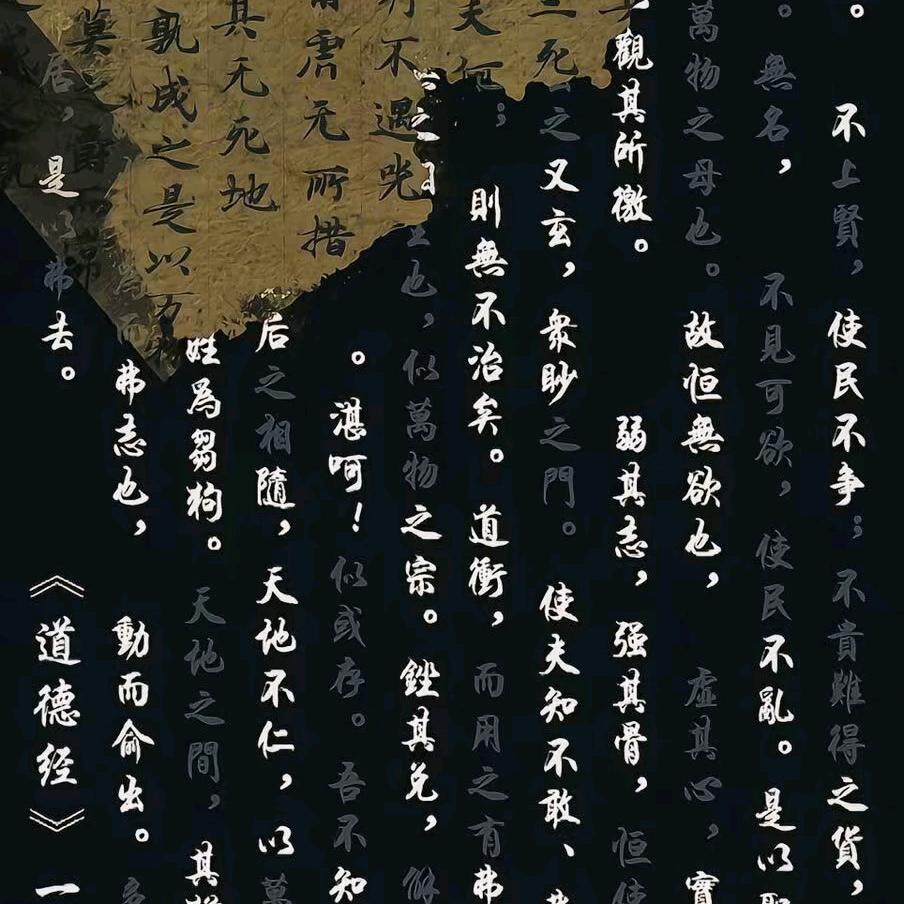 。不上賢，使民不争；不貴難得之貨，
。無名，不見可欲，使民不亂。是以
萬物之母也。故恒無欲也，虛其心，實
觀其所徼。弱其志，强其骨，恒使
死
之又玄，衆眇之門。使夫知不敢、弗
夫何
；則無不治矣。道衝，而用之有弗
不遇兕
也，似萬物之宗。銼其兌，解
虎无所措
。湛呵！似或存。吾不知
其无死地
后之相隨，天地不仁，以萬
孰成之是以万
姓為芻狗。天地之間，其
莫
弗志也，動而俞出。多
居，是以弗去。
《道德经》一